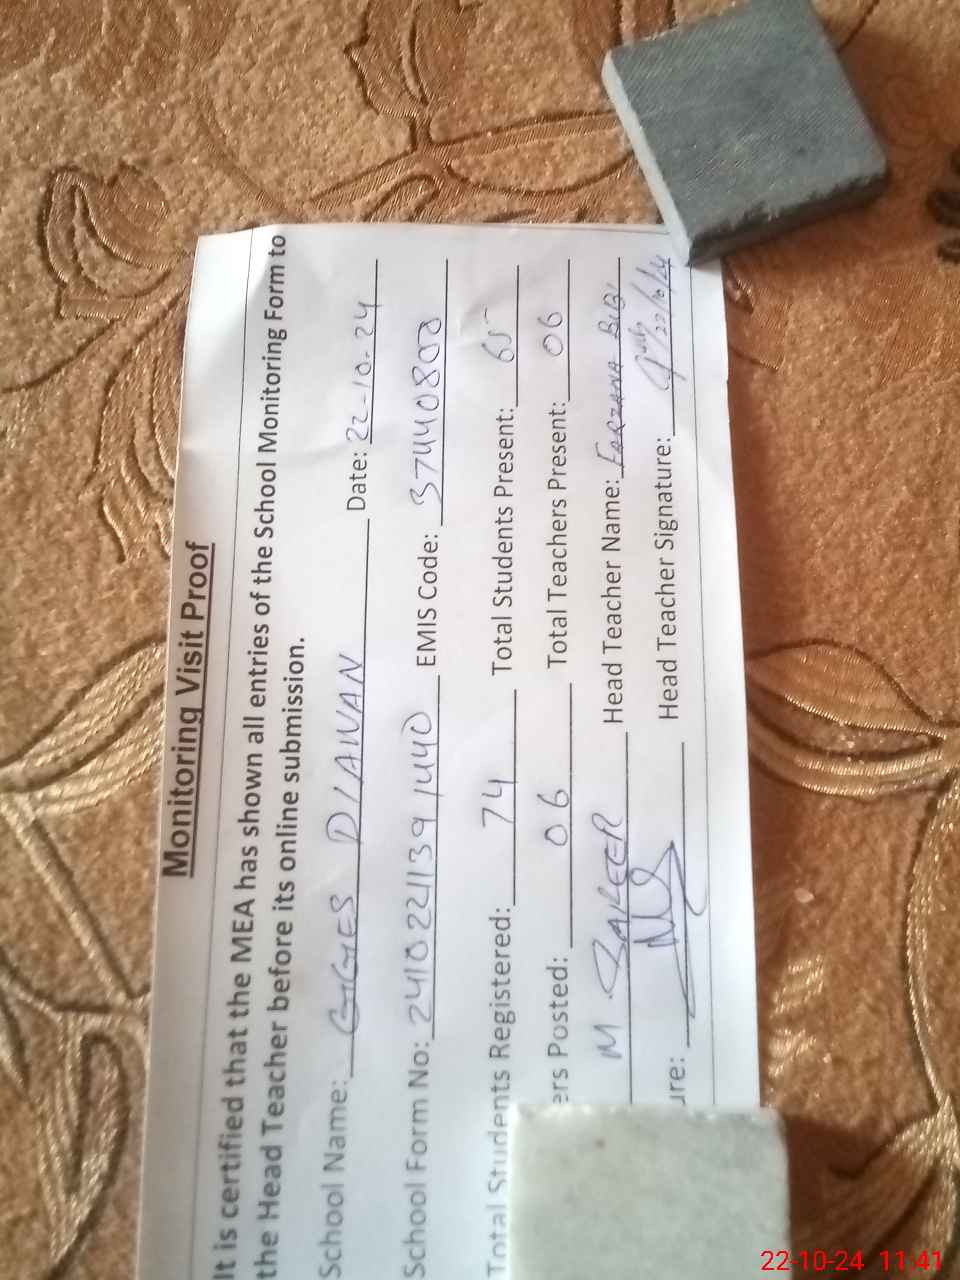 Monitoring Visit Proof
It is certified that the MEA has shown all entries of the School Monitoring Form to
the Head Teacher before its online submission.
School Name: GGES DIAWAN Date: 22-10-24
School Form No: 2410221139 1440 EMIS Code: 37440803
Total Students Registered: 74 Total Students Present: 65
ers Posted: 06 Total Teachers Present: 06
M. BAKEER Head Teacher Name: FARZANA BIBI
ure: Head Teacher Signature: 22/10/24
22-10-24 11:41